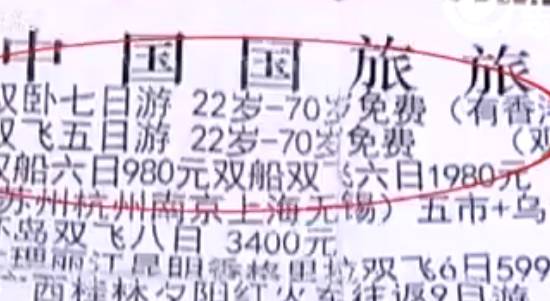 中国国旅旅
双卧七日游 22岁-70岁免费（有香
双飞五日游 22岁-70岁免费 （双
双船六日980元双船双飞六日1980元
苏州杭州南京上海无锡）五市+乌
岛双飞八日 3400元
丽江昆明香格里拉双飞6日599
桂林夕阳红火车往返9日游